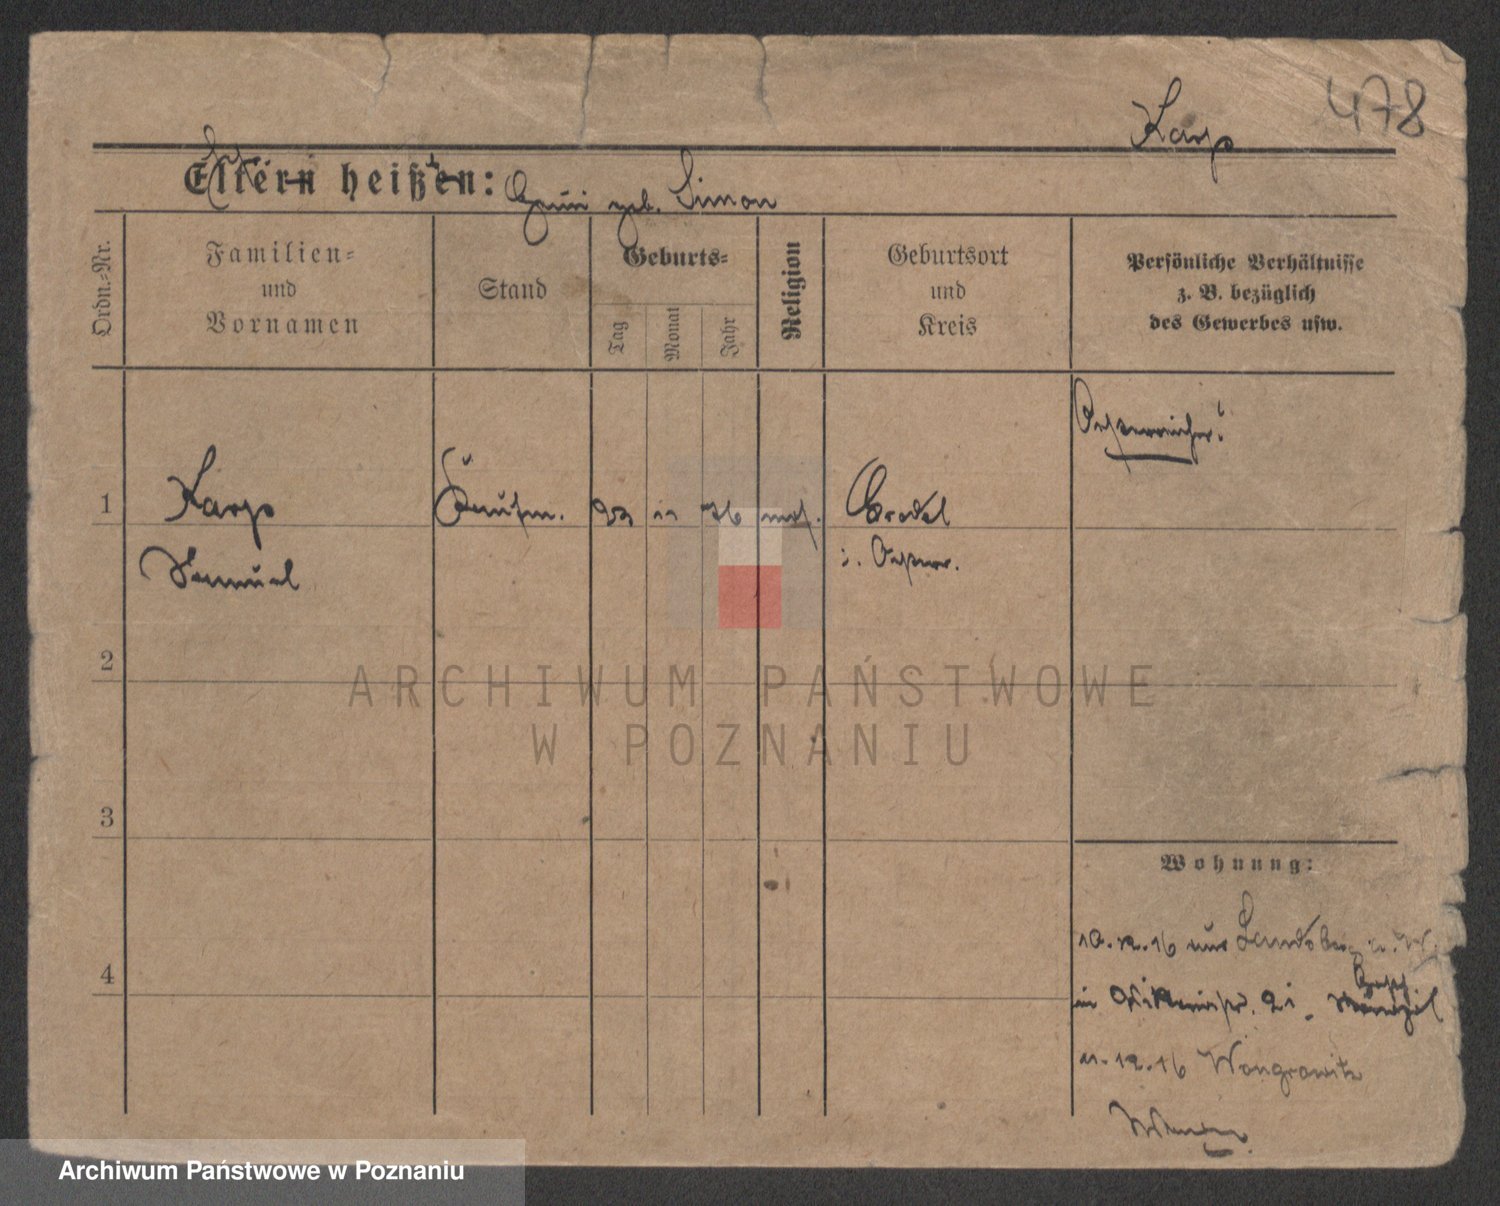 478
Karp
Eltern heißen: geb. Simon
Ordn.-Nr.
Familien-
und
Vornamen
Stand
Geburts-
Tag
Monat
Jahr
Religion
Geburtsort
und
Kreis
Persönliche Verhältnisse
z. B. bezüglich
des Gewerbes usw.
Oesterreicher!
1
Karp
Kaufm.
mos.
Brodel
Samuel
i. Oesterr.
2
3
4
Wohnung:
10.12.16 aus Landsberg a. W.
in Viktoriastr. 21.
11.12.16 Wongrowitz
ARCHIWUM PAŃSTWOWE
W POZNANIU
Archiwum Państwowe w Poznaniu